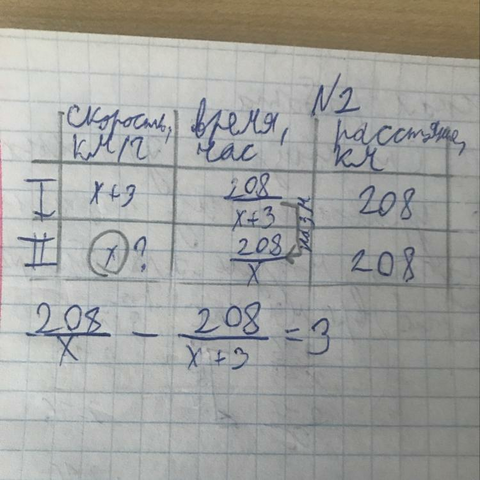 N2
скорость, км/ч время, час расстояние, км
I x+3 208/(x+3) 208
II x? 208/x 208
208/x - 208/(x+3) = 3